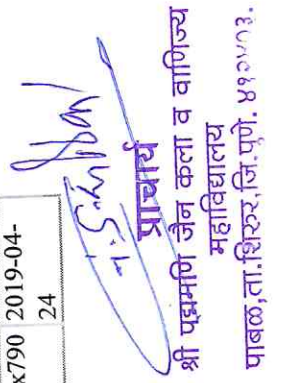 x790 2019-04-
24
प्राचार्य
श्री पद्ममणि जैन कला व वाणिज्य
महाविद्यालय
पाबळ,ता.शिरुर,जि.पुणे. ४१२४०३.